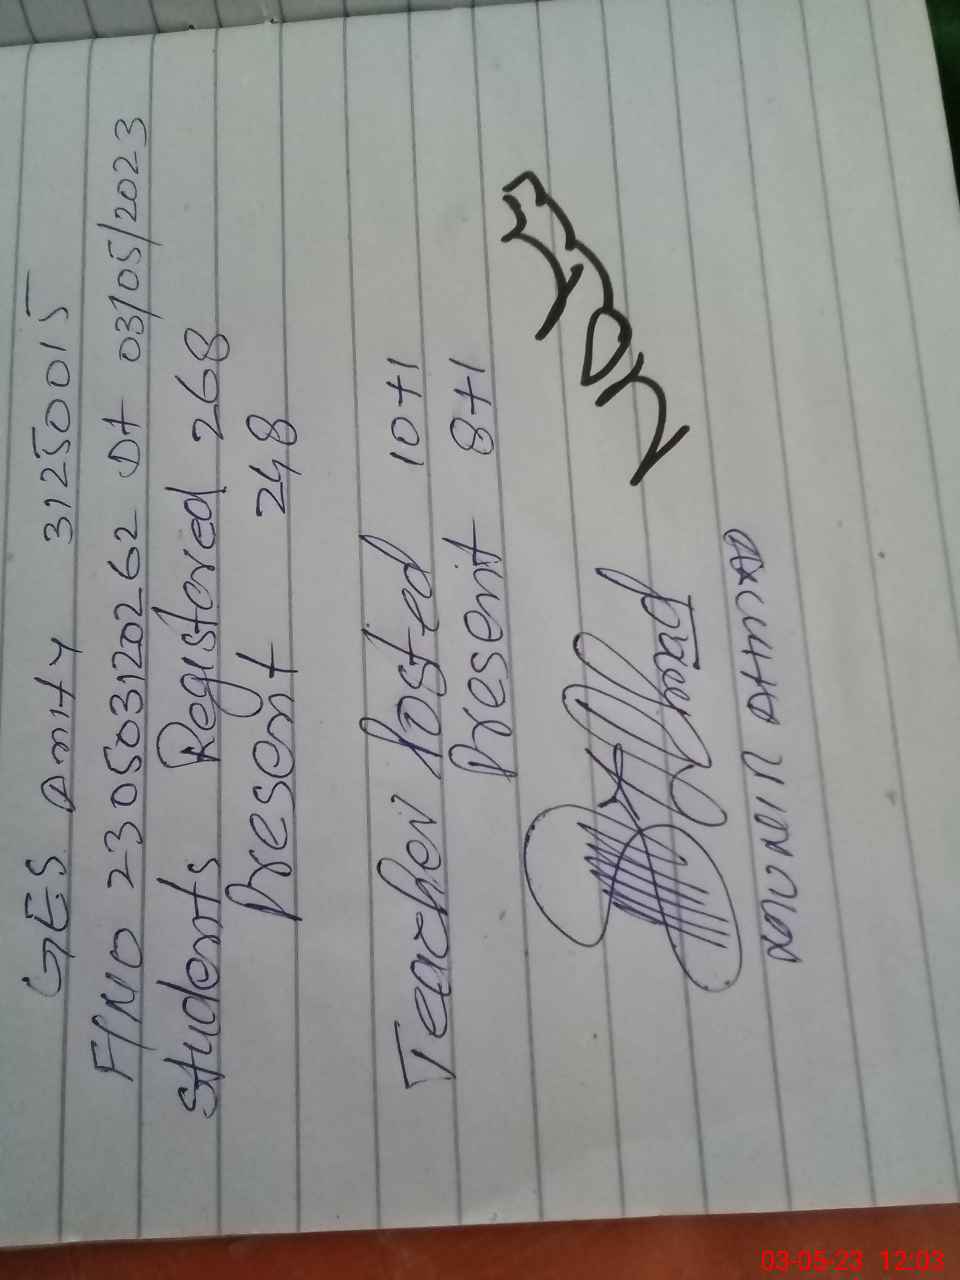 GES Amity 31250015
F/NO 230503120262 Dt 03/05/2023
Students Registered 268
Present 248
Teacher Posted 10+1
Present 8+1
03-05-23 12:03